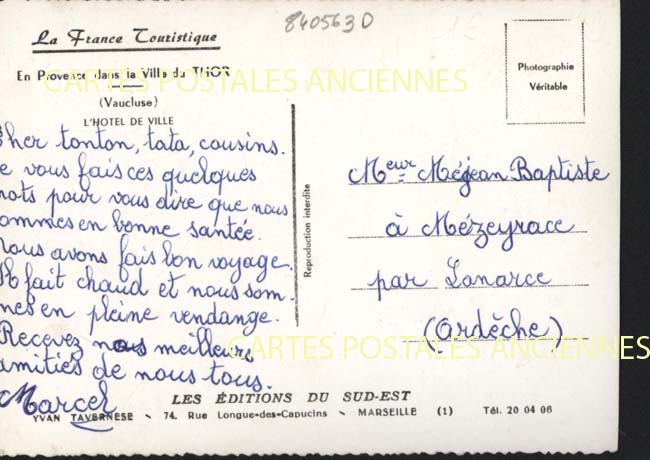 8405630
La France Touristique
En Provence dans la Ville du THOR
(Vaucluse)
L'HOTEL DE VILLE
CARTES POSTALES ANCIENNES
Photographie
Véritable
her tonton, tata, cousins.
e vous fais ces quelques
mots pour vous dire que nous
ommes en bonne santée.
nous avons fais bon voyage.
Il fait chaud et nous som.
mes en pleine vendange.
Recevez nos meilleurs
amitiés de nous tous.
Marcel
Reproduction interdite
Meur Méjean Baptiste
à Mézeyrace
par Lanarce
(Ardèche)
CARTES POSTALES ANCIENNES
LES ÉDITIONS DU SUD-EST
YVAN TAVERNESE - 74, Rue Longue-des-Capucins - MARSEILLE (1) Tél. 20 04 06